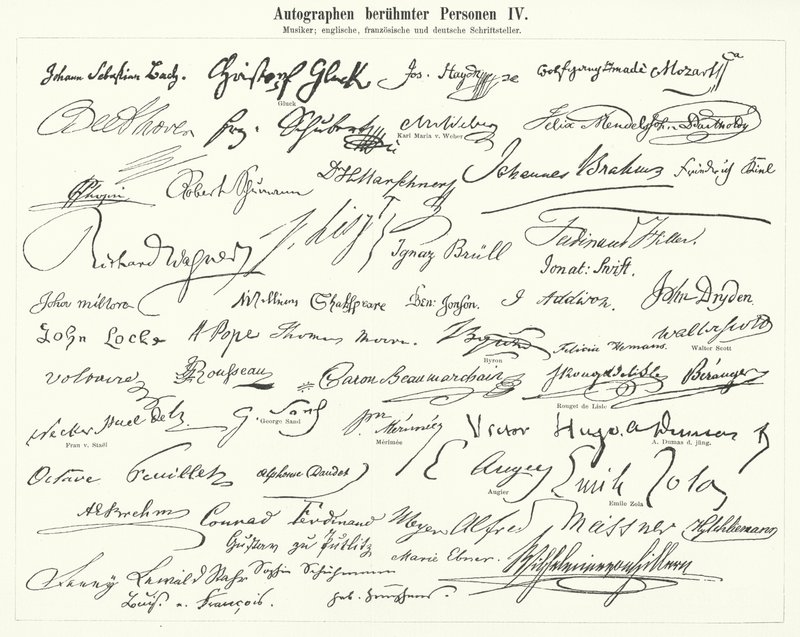 Autographen berühmter Personen IV.
Musiker; englische, französische und deutsche Schriftsteller.
Johann Sebastian Bach. Christoph Gluck Jos. Haydn Wolfgang Amadè Mozart
Gluck
Beethoven Frz. Schubert CMvWeber Felix Mendelssohn-Bartholdy
Karl Maria v. Weber
Chopin Robert Schumann Dr HMarschner Johannes Brahms Friedrich Kiel
Richard Wagner F. Liszt Ignaz Brüll Ferdinand Hiller.
Jonat: Swift.
John Milton William Shakspeare Ben: Jonson. J Addison. John Dryden
John Locke A Pope Thomas Moore. Byron Felicia Hemans. Walter Scott
Byron Walter Scott
Voltaire JJRousseau Caron Beaumarchais Rouget de Lisle Béranger
Rouget de Lisle
Necker Stael de H. G. Sand Pr Mérimée Victor Hugo. A. Dumas f
Frau v. Staël George Sand Mérimée A. Dumas d. jüng.
Octave Feuillet Alphonse Daudet E Augier Emile Zola
Augier Emile Zola
AEBrehm Conrad Ferdinand Meyer Alfred Meissner HySchliemann
Gustav zu Putlitz Marie Ebner. Wilhelmine von Hillern
Fanny Lewald Stahr Sophie Schuhmann
Louise v. François. geb.